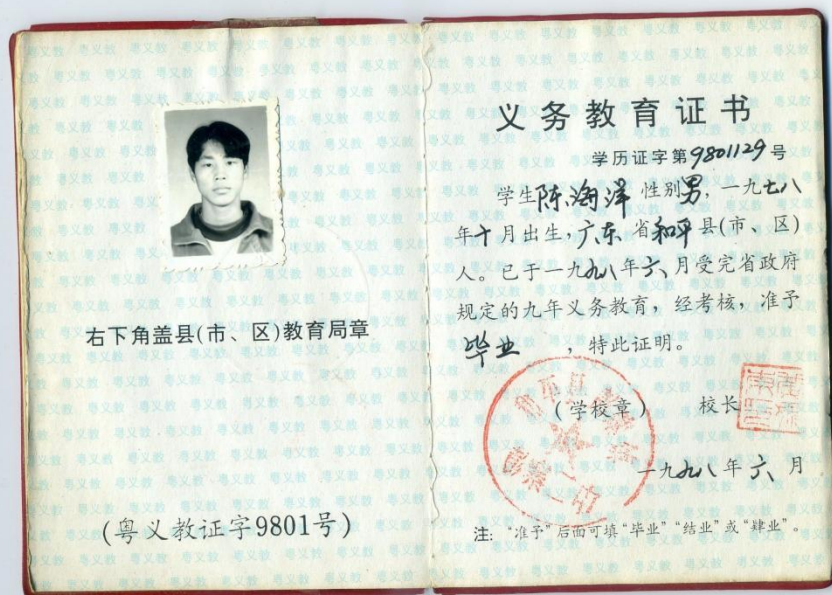 右下角盖县(市、区)教育局章
(粤义教证字9801号)
义务教育证书
学历证字第9801129号
学生陈海洋 性别男,一九七八
年十月出生,广东省和平县(市、区)
人。已于一九九八年六月受完省政府
规定的九年义务教育,经考核,准予
毕业 ,特此证明。
(学校章) 校长
一九九八年六月
注:“准予”后面可填“毕业”“结业”或“肄业”。